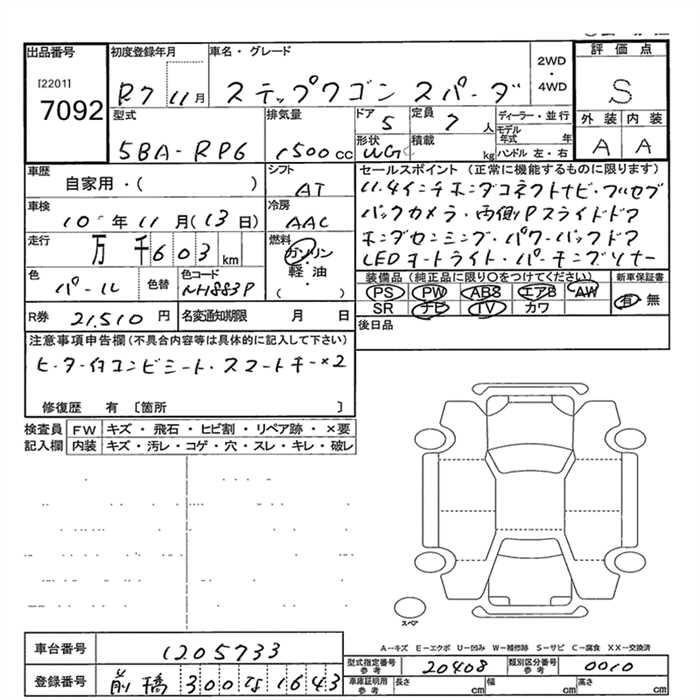 出品番号 初度登録年月 車名・グレード 2WD・4WD 評価点
[2201]
7092 R.7 11月 ステップワゴン スパーダ S
型式 排気量 ドア 5 定員 7人 ディーラー・並行 外装 内装
5BA-RP6 1500cc 形状 WG 積載 kg モデル年式 年 ハンドル 左・右 A A
車歴 自家用・( ) シフト AT セールスポイント (正常に機能するものに限ります)
車検 10年11月(13日) 冷房 AAC 11.4インチホンダコネクトナビ・フルセグ
バックカメラ・両側Pスライドドア
走行 万千603km 燃料 ガソリン 軽油 ( ) ホンダセンシング・パワーバックドア
LEDオートライト・パーキングソナー
色 パール 色替 色コード NH883P 装備品(純正品に限り○をつけてください) 新車保証書
PS PW ABS エアB AW 有・無
SR ナビ TV カワ
R券 21,510円 名変通知期限 月 日 後日品
注意事項申告欄(不具合内容等は具体的に記入して下さい)
ヒーター付コンビシート・スマートキー×2
修復歴 有 〔箇所 〕
検査員 FW キズ・飛石・ヒビ割・リペア跡・×要
記入欄 内装 キズ・汚レ・コゲ・穴・スレ・キレ・破レ
スペア
A－キズ E－エクボ U－凹み W－補修跡 S－サビ C－腐食 XX－交換済
車台番号 1205733 型式指定番号 参考 20408 類別区分番号 参考 0010
登録番号 前橋 300 な 1643 車庫証明用 参考 長さ cm 幅 cm 高さ cm